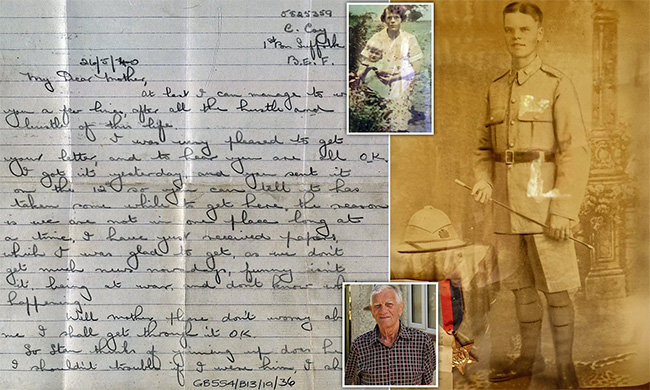 5825259
C. Coy
1st Bn Suffolk
B.E.F.
26/5/40
My Dear Mother,
at last I can manage to
you a few lines, after all the hustle and
bustle of this life.
I was very pleased to get
your letter, and to hear you are all O.K.
I got it yesterday and you sent it
on the 12th so you can tell it has
taken some while to get here, the reason
is we are not in one place long at
a time, I have just received papers,
which I was glad to get, as we don't
get much news nowadays, funny isn't
it, being at war, and don't know
happening.
Well mother please don't worry
me I shall get through it O.K.
So Stan thinks of joining up does
I shouldn't trouble if I were him, I
GB554/B13/19/36